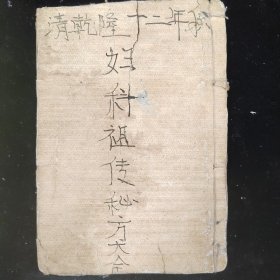 清乾隆十二年
妇科祖传秘方大全